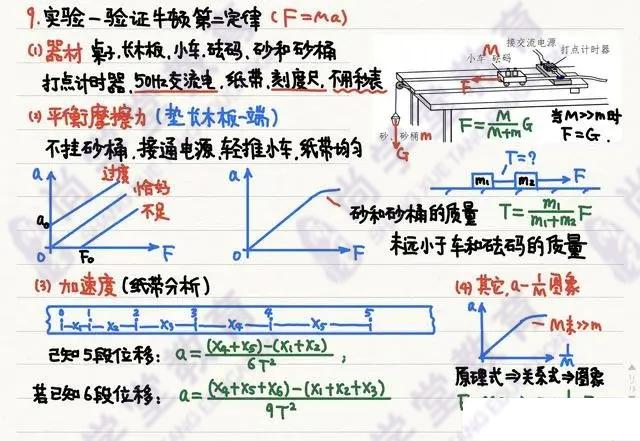 9.实验-验证牛顿第二定律(F=ma)
(1)器材 桌子.长木板.小车.砝码.砂和砂桶
打点计时器.50Hz交流电.纸带.刻度尺.不用秒表
接交流电源
打点计时器
小车 砝码
M
F
砂、砂桶m
G
F=M/(M+m)G
当M>>m时
F=G.
(2)平衡摩擦力(垫长木板一端)
不挂砂桶.接通电源.轻推小车.纸带均匀
a
过度
恰好
不足
a₀
0
F₀
F
a
0
F
砂和砂桶的质量
未远小于车和砝码的质量
T=?
m₁
m₂
F
T=m₁/(m₁+m₂)F
(3)加速度(纸带分析)
0 1 2 3 4 5
X₁ X₂ X₃ X₄ X₅
已知5段位移: a=((X₄+X₅)-(X₁+X₂))/6T²;
若已知6段位移: a=((X₄+X₅+X₆)-(X₁+X₂+X₃))/9T²
(4)其它.a-1/M图象
a
M未>>m
1/M
原理式⇒关系式⇒图象
尚学堂教育